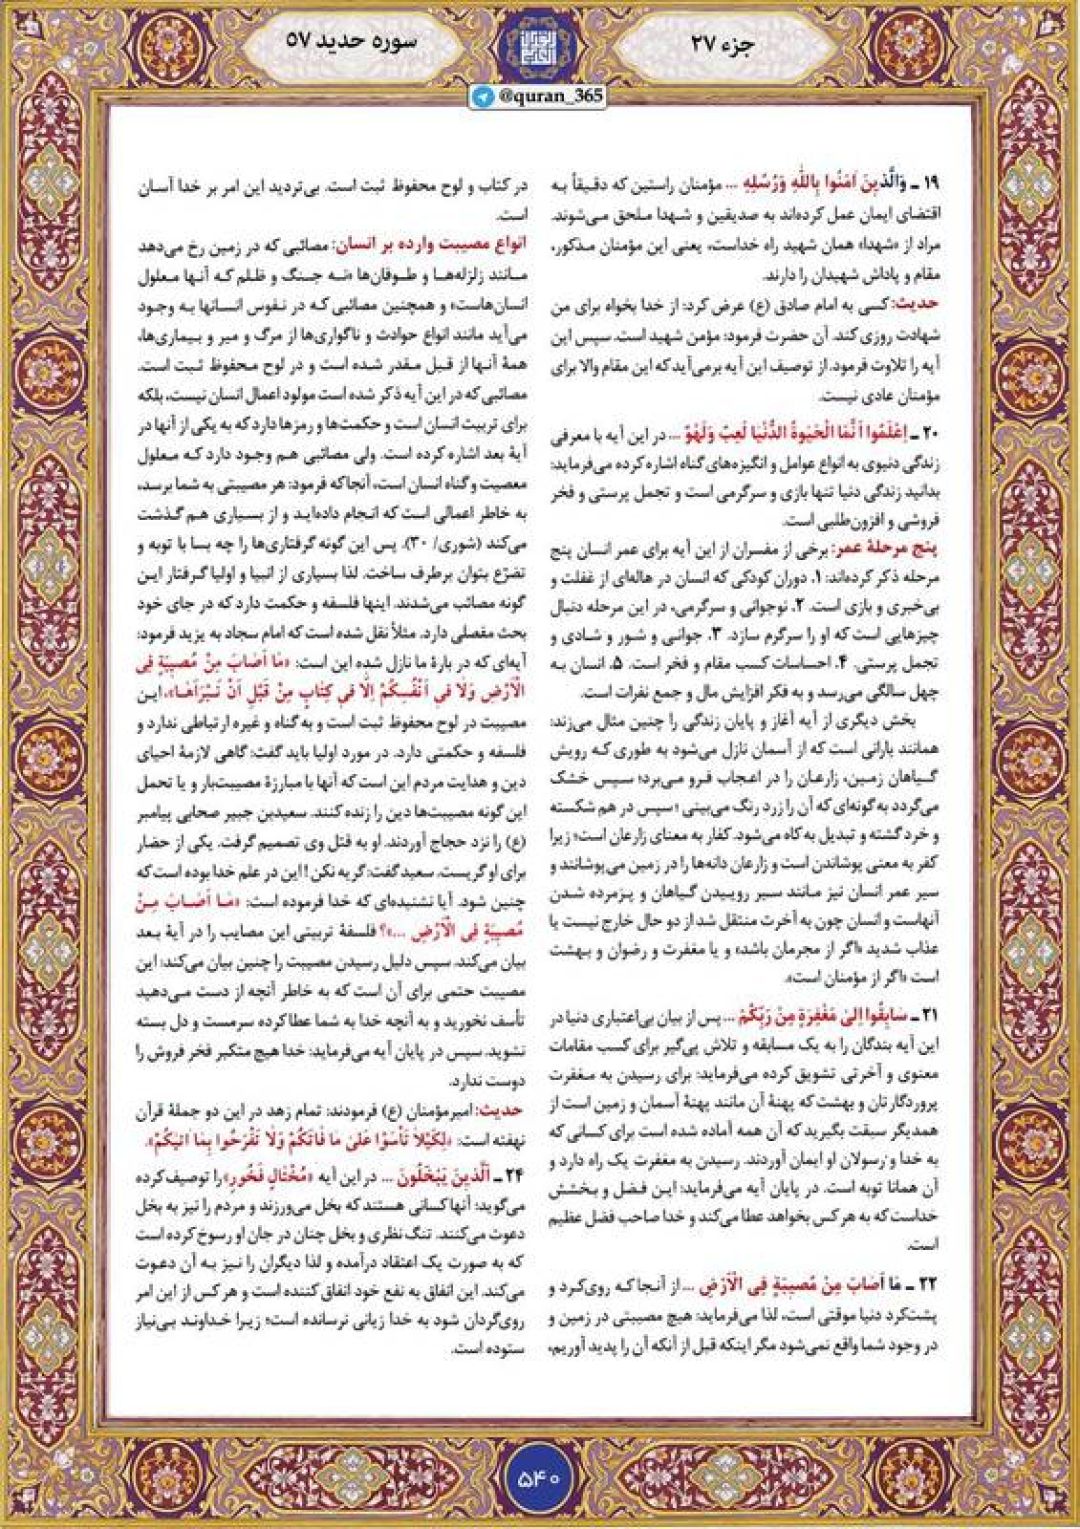 جزء ۲۷
سوره حدید ۵۷
@quran_365
۱۹ ـ وَالَّذینَ آمَنُوا بِاللّٰهِ وَرُسُلِهِ ... مؤمنان راستین که دقیقاً به
اقتضای ایمان عمل کرده‌اند به صدیقین و شهدا ملحق می‌شوند.
مراد از «شهدا» همان شهید راه خداست، یعنی این مؤمنان مذکور،
مقام و پاداش شهیدان را دارند.
حدیث: کسی به امام صادق (ع) عرض کرد: از خدا بخواه برای من
شهادت روزی کند. آن حضرت فرمود: مؤمن شهید است. سپس این
آیه را تلاوت فرمود. از توصیف این آیه برمی‌آید که این مقام والا برای
مؤمنان عادی نیست.
۲۰ ـ اِعْلَمُوا اَنَّمَا الْحَیٰوةُ الدُّنْیٰا لَعِبٌ وَلَهْوٌ ... در این آیه با معرفی
زندگی دنیوی به انواع عوامل و انگیزه‌های گناه اشاره کرده می‌فرماید:
بدانید زندگی دنیا تنها بازی و سرگرمی است و تجمل پرستی و فخر
فروشی و افزون‌طلبی است.
پنج مرحلهٔ عمر: برخی از مفسران از این آیه برای عمر انسان پنج
مرحله ذکر کرده‌اند: ۱. دوران کودکی که انسان در هاله‌ای از غفلت و
بی‌خبری و بازی است. ۲. نوجوانی و سرگرمی، در این مرحله دنبال
چیزهایی است که او را سرگرم سازد. ۳. جوانی و شور و شادی و
تجمل پرستی. ۴. احساسات کسب مقام و فخر است. ۵. انسان به
چهل سالگی می‌رسد و به فکر افزایش مال و جمع نفرات است.
بخش دیگری از آیه آغاز و پایان زندگی را چنین مثال می‌زند:
همانند بارانی است که از آسمان نازل می‌شود به طوری که رویش
گیاهان زمین، زارعان را در اعجاب فرو می‌برد؛ سپس خشک
می‌گردد به گونه‌ای که آن را زرد رنگ می‌بینی؛ سپس در هم شکسته
و خرد گشته و تبدیل به کاه می‌شود. کفار به معنای زارعان است؛ زیرا
کفر به معنی پوشاندن است و زارعان دانه‌ها را در زمین می‌پوشانند و
سیر عمر انسان نیز مانند سیر روییدن گیاهان و پژمرده شدن
آنهاست و انسان چون به آخرت منتقل شد از دو حال خارج نیست یا
عذاب شدید «اگر از مجرمان باشد» و یا مغفرت و رضوان و بهشت
است «اگر از مؤمنان است».
۲۱ ـ سٰابِقُوا اِلیٰ مَغْفِرَةٍ مِنْ رَبِّکُمْ ... پس از بیان بی‌اعتباری دنیا در
این آیه بندگان را به یک مسابقه و تلاش پی‌گیر برای کسب مقامات
معنوی و آخرتی تشویق کرده می‌فرماید: برای رسیدن به مغفرت
پروردگارتان و بهشت که پهنهٔ آن مانند پهنهٔ آسمان و زمین است از
همدیگر سبقت بگیرید که آن همه آماده شده است برای کسانی که
به خدا و رسولان او ایمان آوردند. رسیدن به مغفرت یک راه دارد و
آن همانا توبه است. در پایان آیه می‌فرماید: این فضل و بخشش
خداست که به هر کس بخواهد عطا می‌کند و خدا صاحب فضل عظیم
است.
۲۲ ـ مٰا اَصٰابَ مِنْ مُصیبَةٍ فِی الْاَرْضِ ... از آنجا که روی‌کرد و
پشت‌کرد دنیا موقتی است، لذا می‌فرماید: هیچ مصیبتی در زمین و
در وجود شما واقع نمی‌شود مگر اینکه قبل از آنکه آن را پدید آوریم،
در کتاب و لوح محفوظ ثبت است. بی‌تردید این امر بر خدا آسان
است.
انواع مصیبت وارده بر انسان: مصائبی که در زمین رخ می‌دهد
مانند زلزله‌ها و طوفان‌ها «نه جنگ و ظلم که آنها معلول
انسان‌هاست» و همچنین مصائبی که در نفوس انسانها به وجود
می‌آید مانند انواع حوادث و ناگواری‌ها از مرگ و میر و بیماری‌ها،
همهٔ آنها از قبل مقدر شده است و در لوح محفوظ ثبت است.
مصائبی که در این آیه ذکر شده است مولود اعمال انسان نیست، بلکه
برای تربیت انسان است و حکمت‌ها و رمزها دارد که به یکی از آنها در
آیهٔ بعد اشاره کرده است. ولی مصائبی هم وجود دارد که معلول
معصیت و گناه انسان است، آنجا که فرمود: هر مصیبتی به شما برسد،
به خاطر اعمالی است که انجام داده‌اید و از بسیاری هم گذشت
می‌کند (شوری/ ۳۰). پس این گونه گرفتاری‌ها را چه بسا با توبه و
تضرّع بتوان برطرف ساخت. لذا بسیاری از انبیا و اولیا گرفتار این
گونه مصائب می‌شدند. اینها فلسفه و حکمت دارد که در جای خود
بحث مفصلی دارد. مثلاً نقل شده است که امام سجاد به یزید فرمود:
آیه‌ای که در بارهٔ ما نازل شده این است: «مٰا اَصٰابَ مِنْ مُصیبَةٍ فِی
الْاَرْضِ وَلٰا فی اَنْفُسِکُمْ اِلّٰا فی کِتٰابٍ مِنْ قَبْلِ اَنْ نَبْرَاَهٰا»، این
مصیبت در لوح محفوظ ثبت است و به گناه و غیره ارتباطی ندارد و
فلسفه و حکمتی دارد. در مورد اولیا باید گفت: گاهی لازمهٔ احیای
دین و هدایت مردم این است که آنها با مبارزهٔ مصیبت‌بار و یا تحمل
این گونه مصیبت‌ها دین را زنده کنند. سعیدبن جبیر صحابی پیامبر
(ع) را نزد حجاج آوردند. او به قتل وی تصمیم گرفت. یکی از حضار
برای او گریست. سعید گفت: گریه نکن! این در علم خدا بوده است که
چنین شود. آیا نشنیده‌ای که خدا فرموده است: «مٰا اَصٰابَ مِنْ
مُصیبَةٍ فِی الْاَرْضِ ...»؟ فلسفهٔ تربیتی این مصایب را در آیهٔ بعد
بیان می‌کند. سپس دلیل رسیدن مصیبت را چنین بیان می‌کند: این
مصیبت حتمی برای آن است که به خاطر آنچه از دست می‌دهید
تأسف نخورید و به آنچه خدا به شما عطا کرده سرمست و دل بسته
نشوید. سپس در پایان آیه می‌فرماید: خدا هیچ متکبر فخر فروش را
دوست ندارد.
حدیث: امیرمؤمنان (ع) فرمودند: تمام زهد در این دو جملهٔ قرآن
نهفته است: «لِکَیْلٰا تَأْسَوْا عَلیٰ مٰا فٰاتَکُمْ وَلٰا تَفْرَحُوا بِمٰا اٰتٰیکُمْ».
۲۴ ـ اَلَّذینَ یَبْخَلُونَ ... در این آیه «مُخْتٰالٍ فَخُورٍ» را توصیف کرده
می‌گوید: آنها کسانی هستند که بخل می‌ورزند و مردم را نیز به بخل
دعوت می‌کنند. تنگ نظری و بخل چنان در جان او رسوخ کرده است
که به صورت یک اعتقاد درآمده و لذا دیگران را نیز به آن دعوت
می‌کند. این انفاق به نفع خود انفاق کننده است و هر کس از این امر
روی‌گردان شود به خدا زیانی نرسانده است؛ زیرا خداوند بی‌نیاز
ستوده است.
۵۴۰